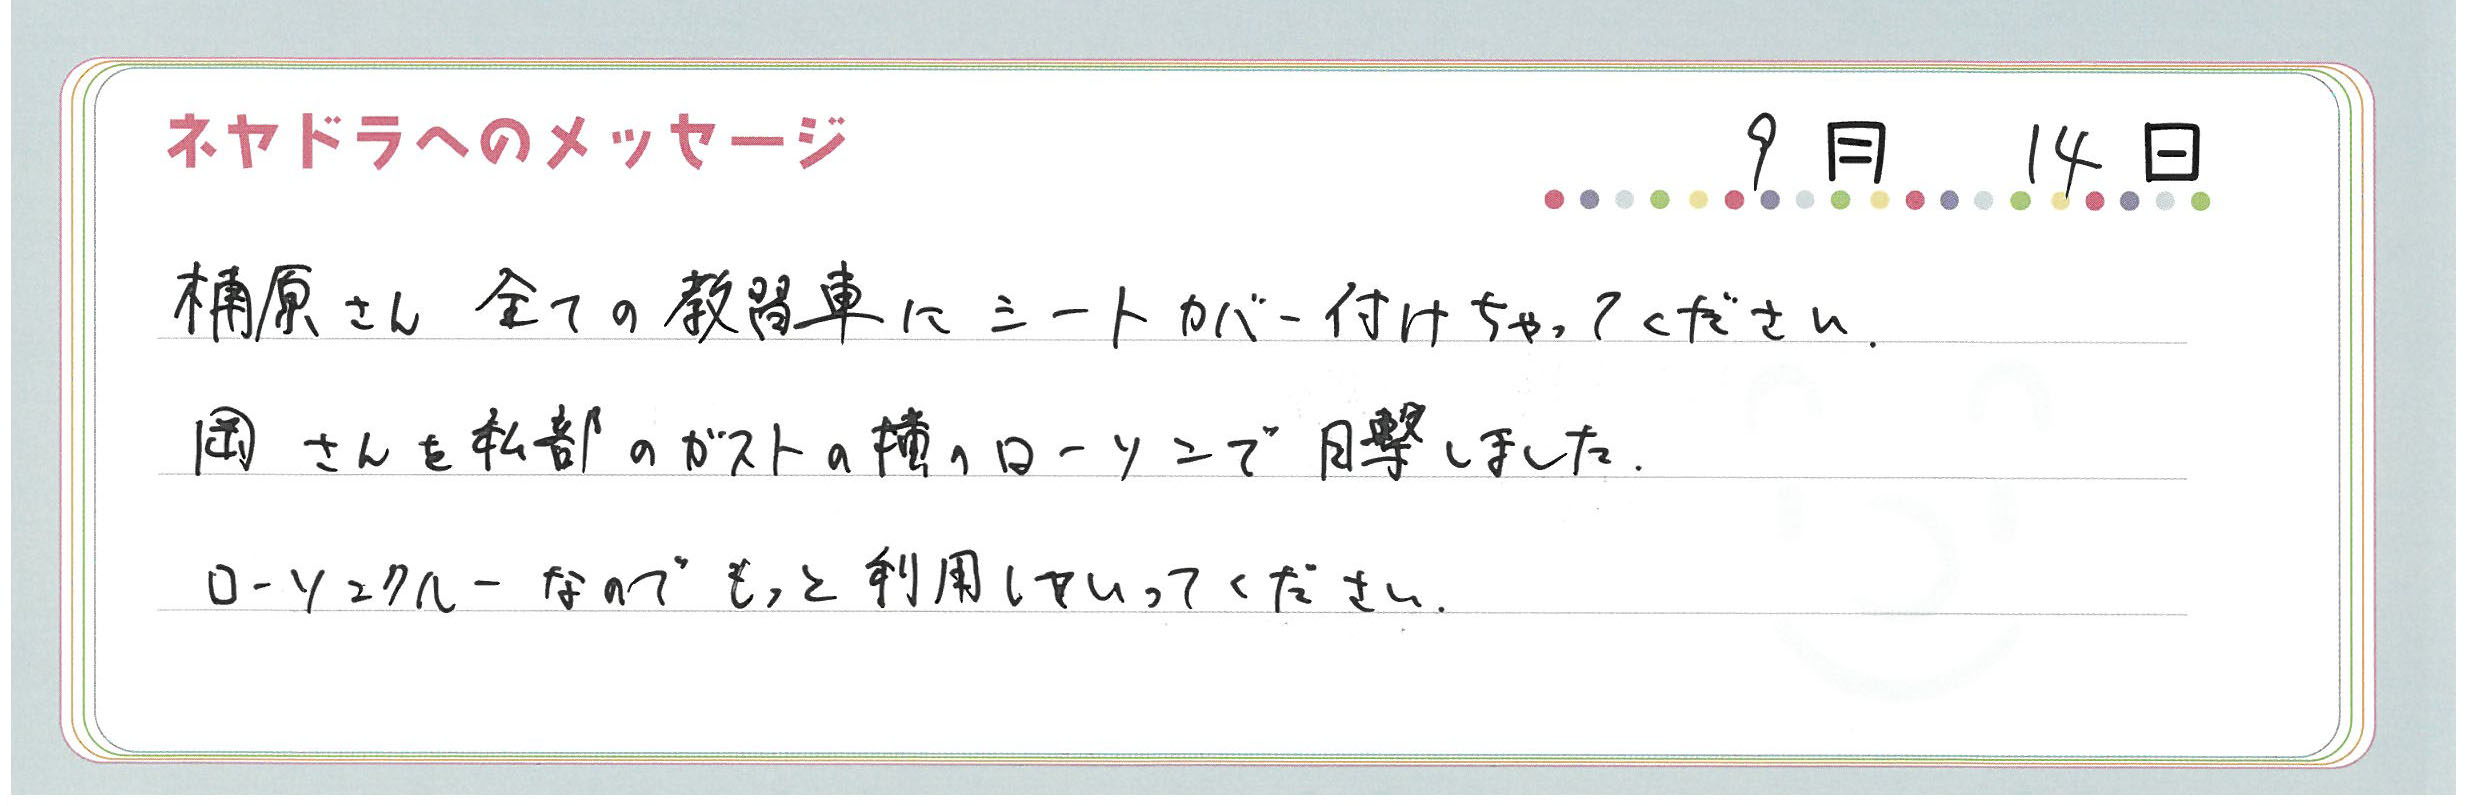 ネヤドラへのメッセージ
9月 14日
楠原さん 全ての教習車にシートカバー付けちゃってください.
岡さんを私部のガストの横のローソンで目撃しました.
ローソンクルーなのでもっと利用しやいってください.